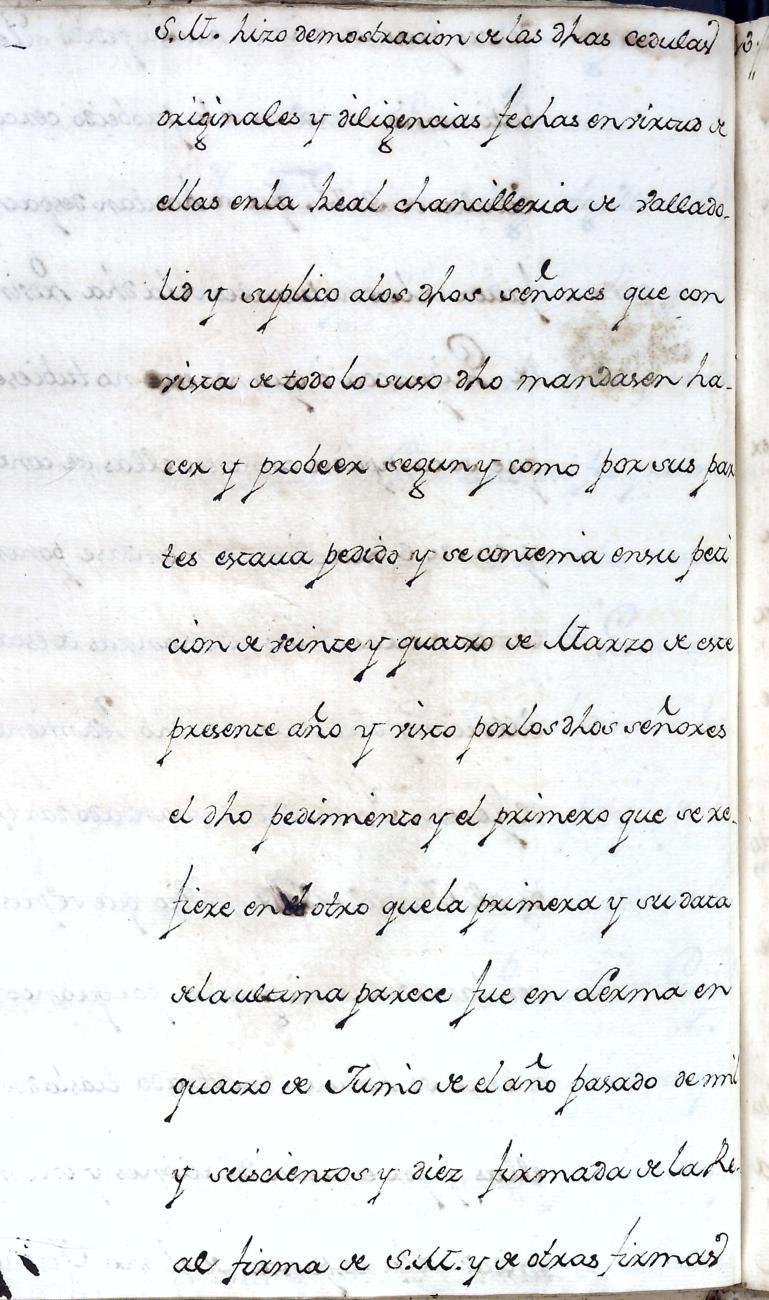 S.M. hizo demostracion de las dhas cedulas
originales y diligencias fechas en virtud de
ellas en la Real chancilleria de Vallado-
lid y suplico a los dhos señores que con
vista de todo lo suso dho mandasen ha-
cer y probeer segun y como por sus par
tes estaua pedido y se contenia en su peti
cion de veinte y quatro de Marzo de este
presente año y visto por los dhos señores
el dho pedimiento y el primero que se re-
fiere en el otro que la primera y su data
de la ultima parece fue en Lerma en
quatro de Junio de el año pasado de mil
y seiscientos y diez firmada de la Re-
al firma de S.M. y de otras firmas